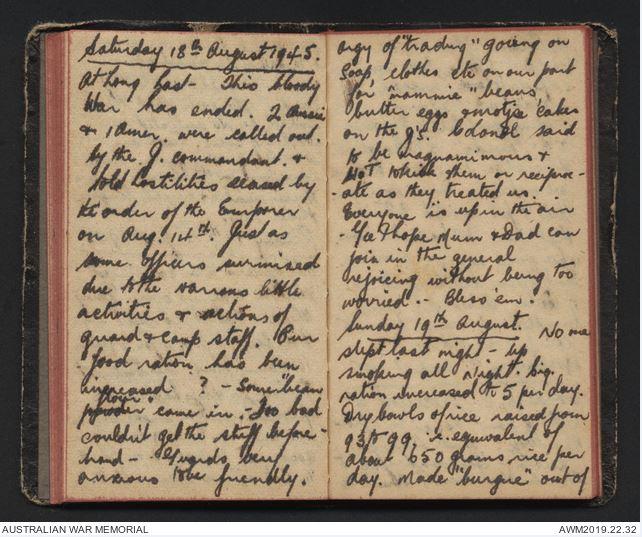 Saturday 18th August 1945.
At Long Last - This bloody
War has ended. 2 Aussie
& 1 Amer. were called out.
by the J. commandant. &
told hostilities ceased by
the order of the Emporer
on Aug. 14th. Just as
some officers surmised
due to the various little
activities & actions of
guard & camp staff. Our
food ration has been
increased ? - Some "bean
flour
powder" come in. - Too bad
couldn't get the stuff before-
hand - Guards very
anxious to be friendly.
orgy of "trading" going on
Soap, clothes etc on our part
for "mammie" beans
butter eggs & motjie cakes
on the J's. Colonel said
to be magnanimous &
NOT to them or reciproc-
- ate as they treated us.
Everyone is up in the air
- Gee I hope Mum & Dad can
join in the general
rejoicing without being too
worried. - Bless 'em.
Sunday 19th August. No one
slept last night - up
smoking all night. Cig.
ration increased to 5 per day.
Dry bowls of rice raised from
93 to 99. i.e. equivalent of
about 650 grams rice per
day. Made "burgue" out of
AUSTRALIAN WAR MEMORIAL
AWM2019.22.32